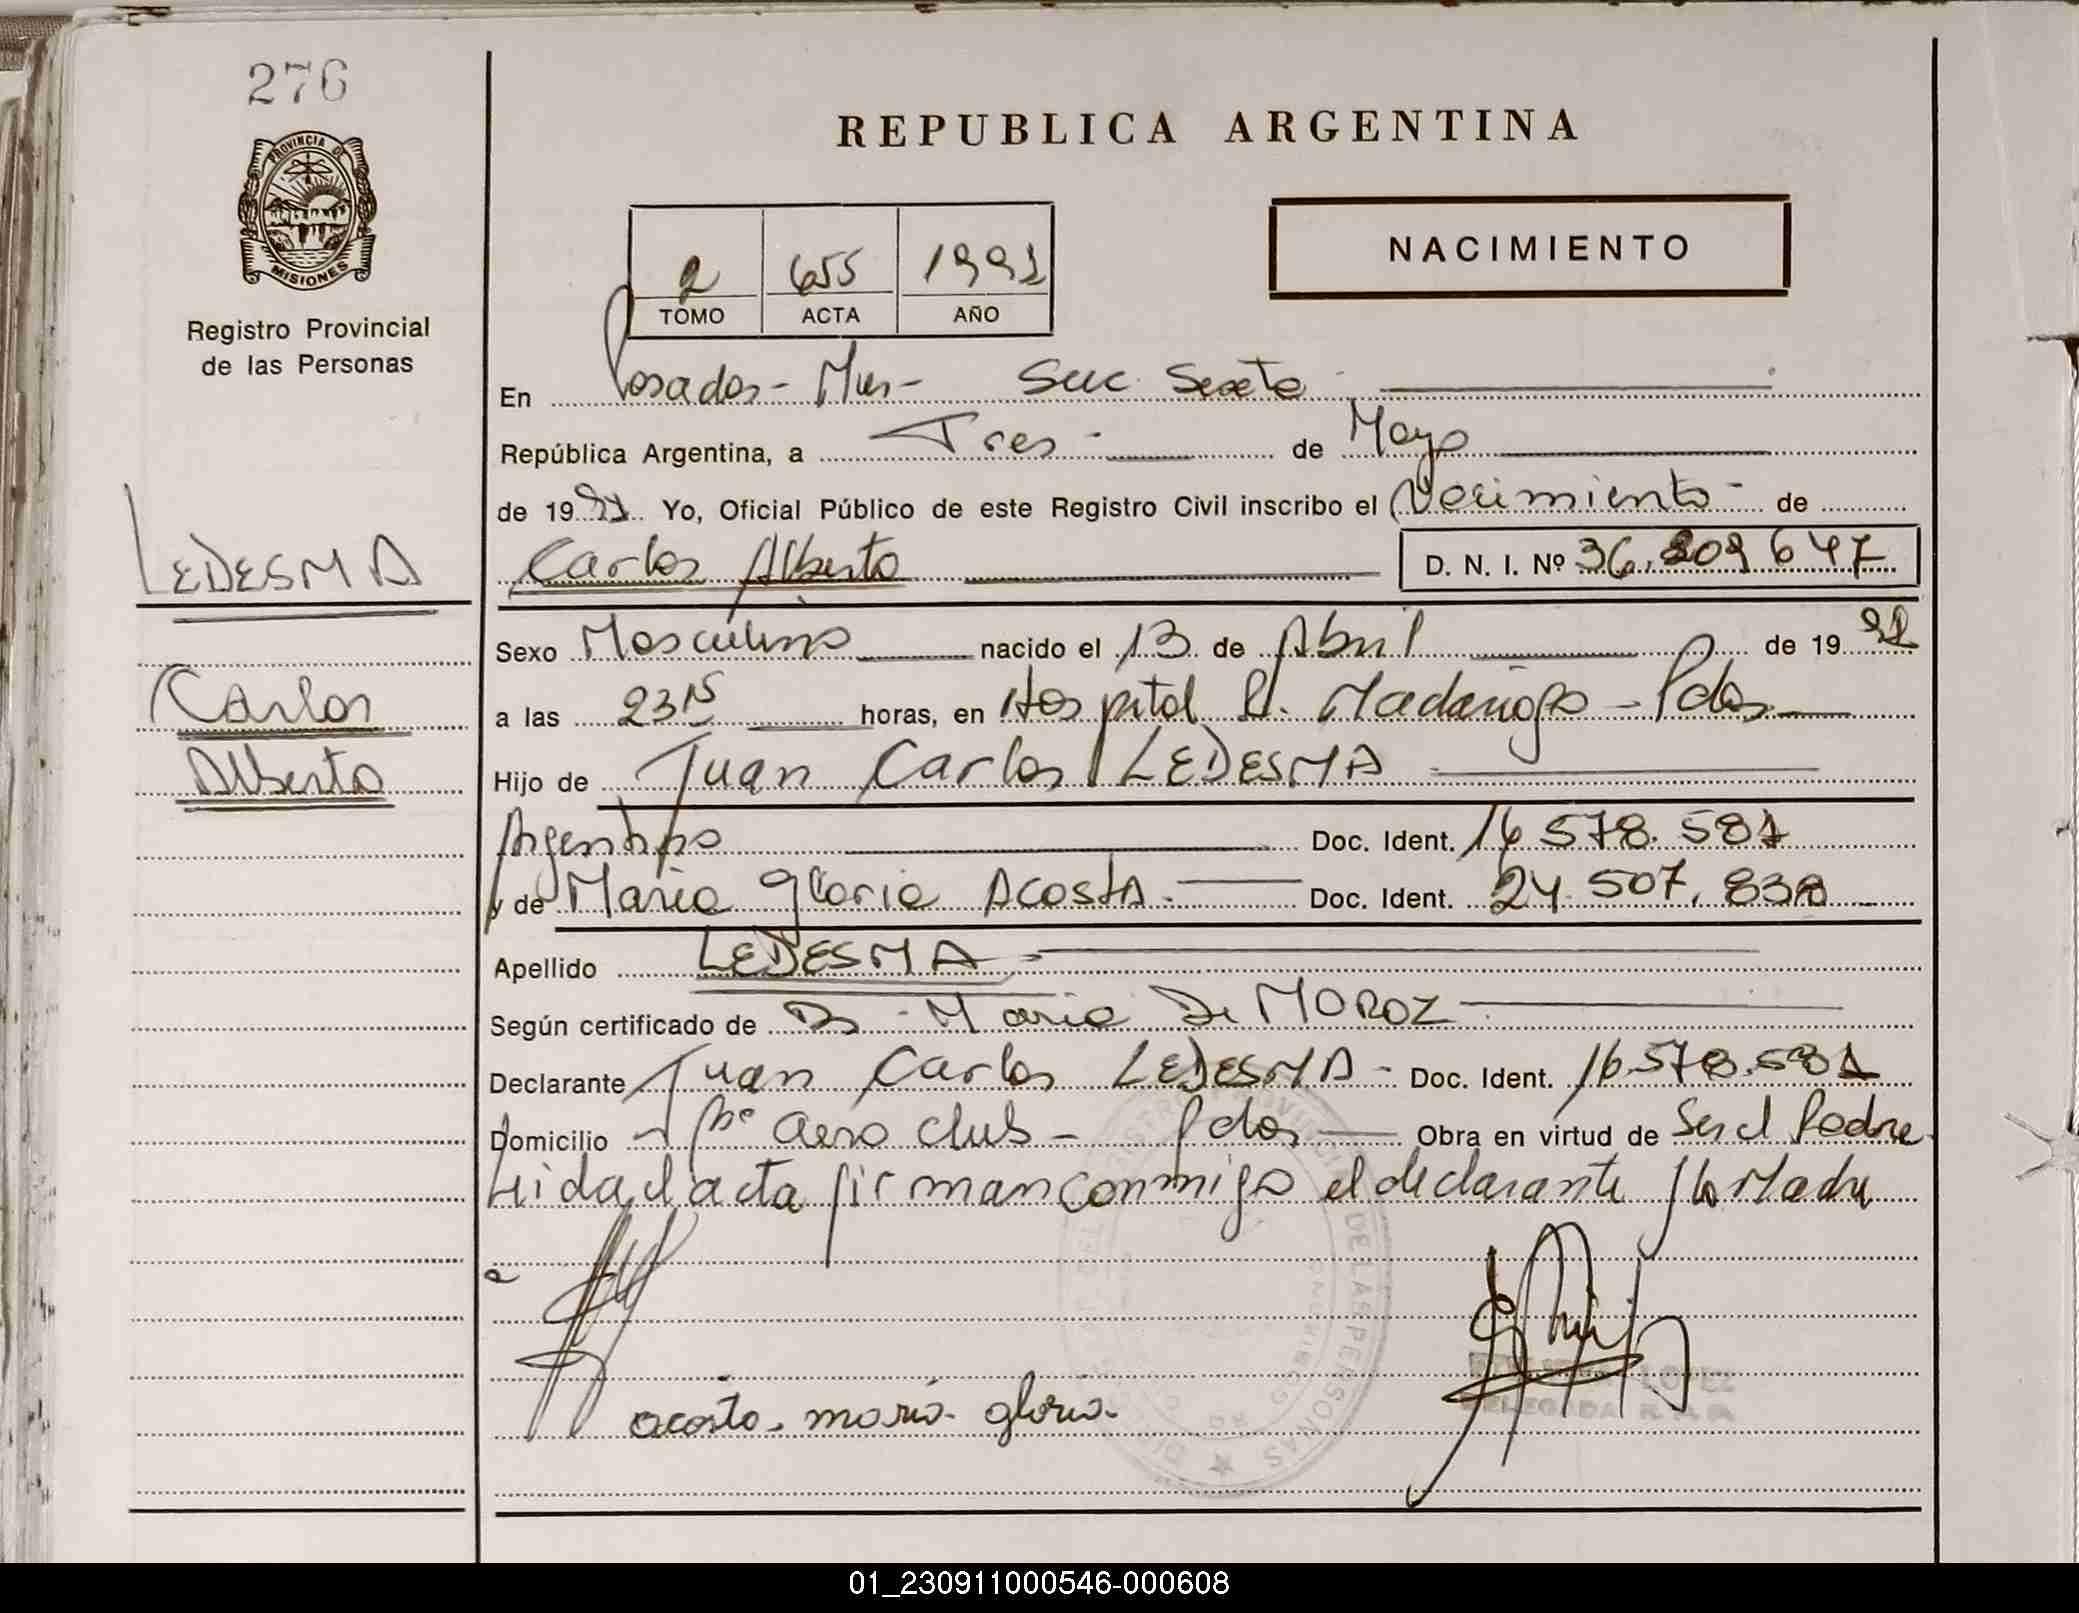 276
PROVINCIA DE
MISIONES
Registro Provincial
de las Personas
LEDESMA
Carlos
Alberto
REPUBLICA ARGENTINA
NACIMIENTO
2 655 1991
TOMO ACTA AÑO
En Posadas - Mnes - Secc. Sexta
República Argentina, a Tres de Mayo
de 1991 Yo, Oficial Público de este Registro Civil inscribo el Nacimiento de
Carlos Alberto D. N. I. Nº 36.209.647
Sexo Masculino nacido el 13 de Abril de 1991
a las 23 15 horas, en Hospital R. Madariaga - Pdas
Hijo de Juan Carlos LEDESMA
Argentino Doc. Ident. 16.578.581
y de Maria Gloria ACOSTA Doc. Ident. 24.507.838
Apellido LEDESMA
Según certificado de Maria De MOROZ
Declarante Juan Carlos LEDESMA - Doc. Ident. 16.578.581
Domicilio Bº aero club - Pdas Obra en virtud de Ser el Padre
Leida el acta firman conmigo el declarante y la Madre
acosta. maría. gloria.
LOPEZ
DELEGADA
DE LAS PERSONAS
01_230911000546-000608